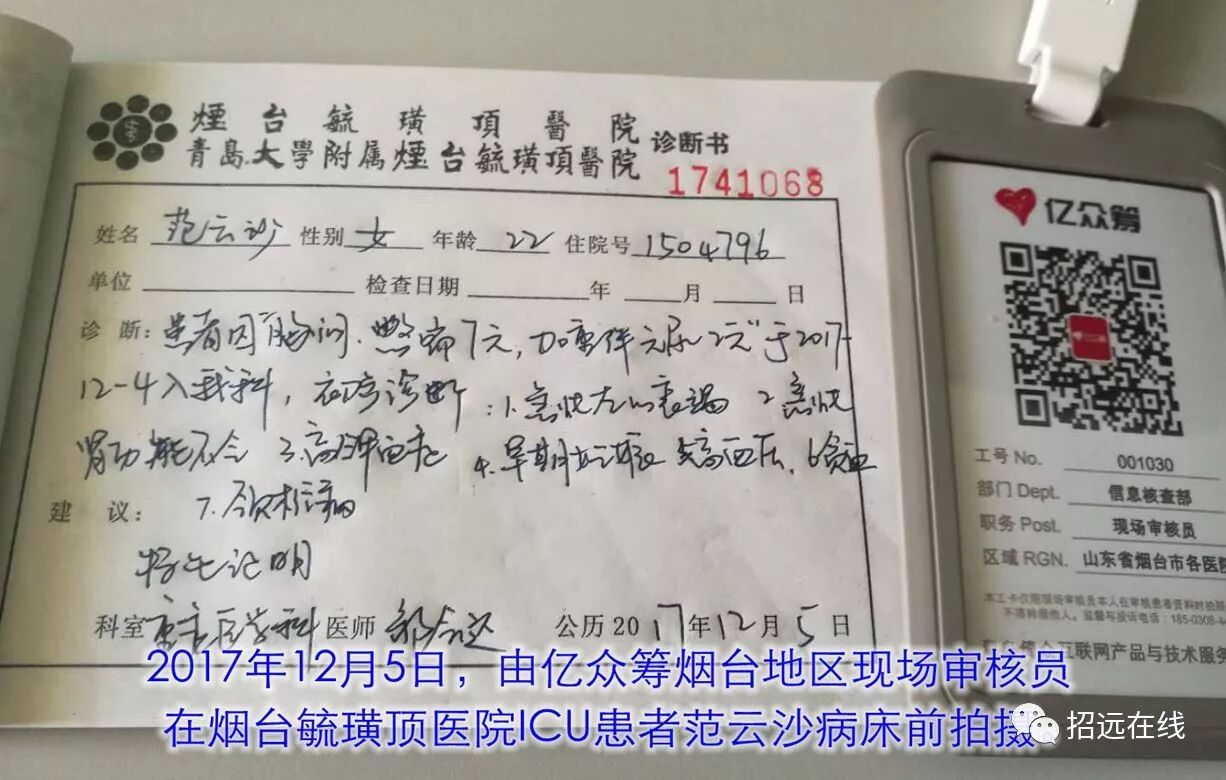 煙台毓璜頂醫院
青島大學附属煙台毓璜頂醫院 诊断书
1741068
姓名 范云沙 性别 女 年龄 22 住院号 1504796
单位 检查日期 年 月 日
诊 断: 患者因"胸闷、憋喘7天,加重伴无尿2天"于2017-
12-4入我科,初步诊断:1.急性左心衰竭 2.急性
肾功能不全 3.高钾血症 4. 高血压、6贫血
建 议: 7.
特此证明
科室 重症医学科 医师 公历 2017年12月5日
亿众筹
工号 No. 001030
部门 Dept. 信息核查部
职务 Post. 现场审核员
区域 RGN. 山东省烟台市各医院
本工卡仅限现场审核员本人在审核患者资料时拍照
不得转借他人。监督与投诉电话:185-0308-4
互联网产品与技术服务
2017年12月5日,由亿众筹烟台地区现场审核员
在烟台毓璜顶医院ICU患者范云沙病床前拍摄
招远在线